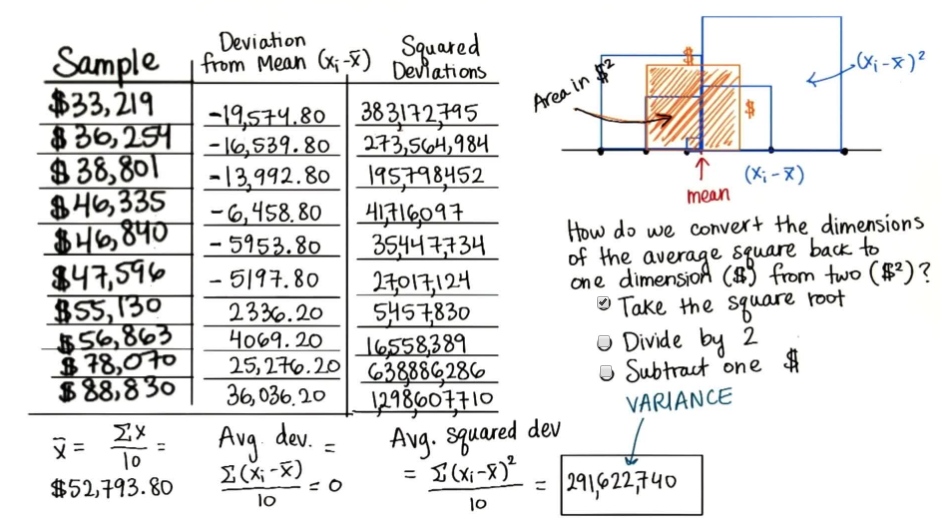 Sample
Deviation
from Mean (xᵢ-x̄)
Squared
Deviations
$33,219 -19,574.80 383,172,795
$36,254 -16,539.80 273,564,984
$38,801 -13,992.80 195,798,452
$46,335 -6,458.80 41,716,097
$46,840 -5953.80 35,447,734
$47,596 -5197.80 27,017,124
$55,130 2336.20 5,457,830
$56,863 4069.20 16,558,389
$78,070 25,276.20 638,886,286
$88,830 36,036.20 1,298,607,710
x̄ = Σx/10 =
$52,793.80
Avg. dev. =
Σ(xᵢ-x̄)/10 = 0
Avg. squared dev
= Σ(xᵢ-x̄)²/10 = 291,622,740
Area in $²
$
$
(xᵢ-x̄)²
(xᵢ-x̄)
mean
How do we convert the dimensions
of the average square back to
one dimension ($) from two ($²)?
Take the square root
Divide by 2
Subtract one $
VARIANCE